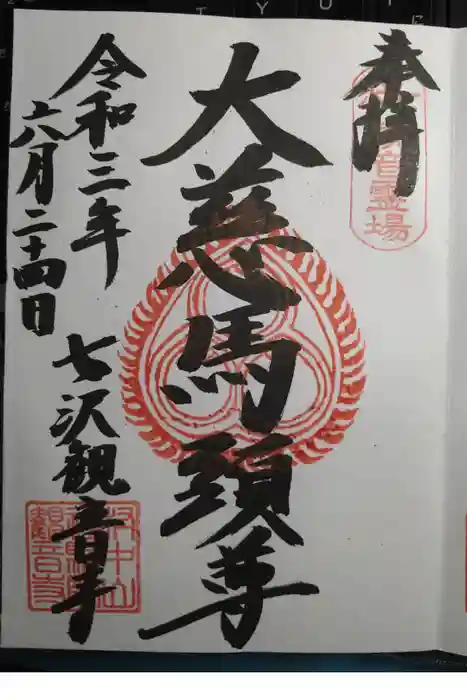 奉拝
音霊場
大慈馬頭尊
七沢観音寺
令和三年
六月二十四日
観音寺